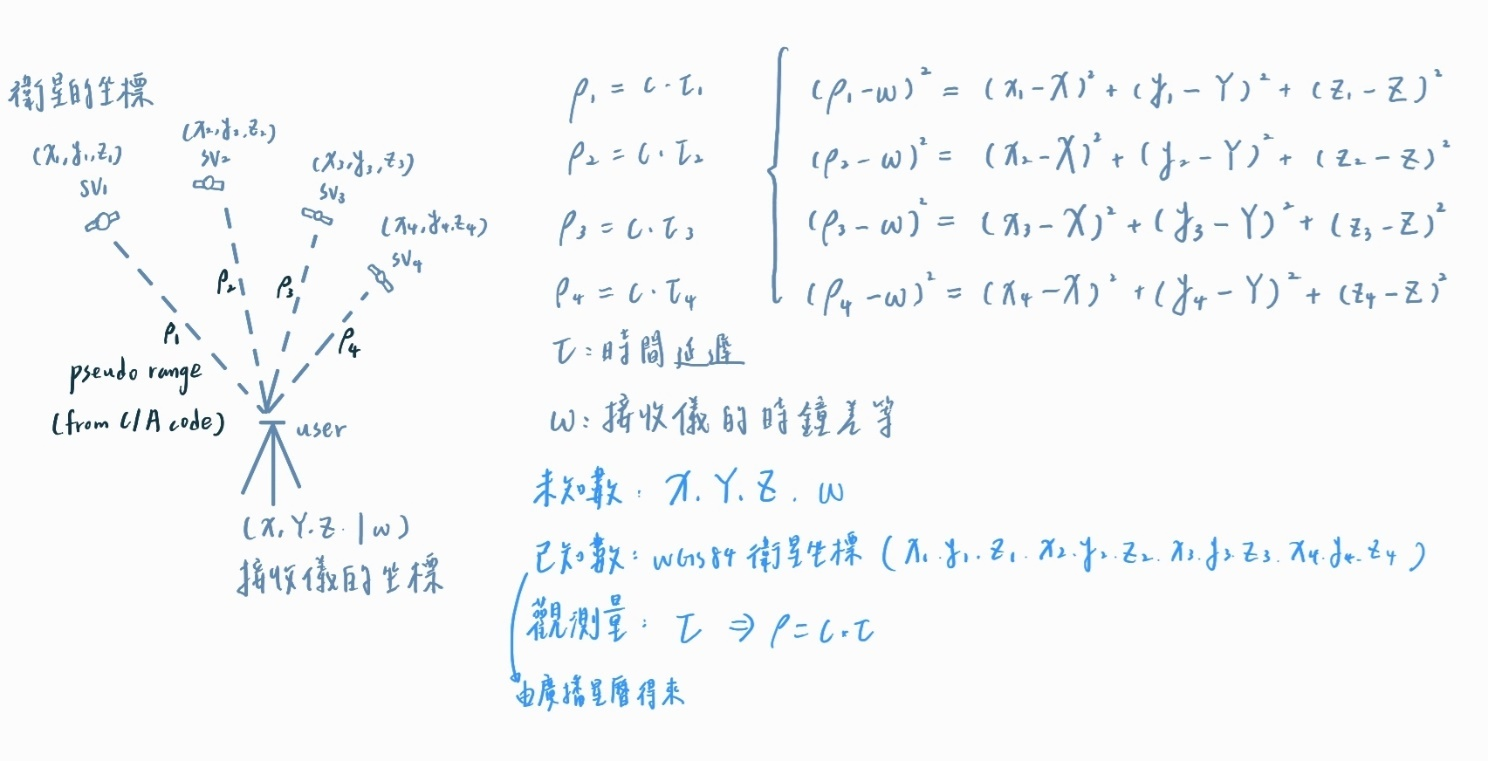 衛星的坐標
(x₁,y₁,z₁)
SV₁
(x₂,y₂,z₂)
SV₂
(x₃,y₃,z₃)
SV₃
(x₄,y₄.z₄)
SV₄
ρ₁
ρ₂
ρ₃
ρ₄
pseudo range
(from C/A code)
user
(X,Y.Z.|w)
接收儀的坐標
ρ₁ = c·τ₁
ρ₂ = c·τ₂
ρ₃ = c·τ₃
ρ₄ = c·τ₄
(ρ₁-w)² = (x₁-X)² + (y₁-Y)² + (z₁-Z)²
(ρ₂-w)² = (x₂-X)² + (y₂-Y)² + (z₂-Z)²
(ρ₃-w)² = (x₃-X)² + (y₃-Y)² + (z₃-Z)²
(ρ₄-w)² = (x₄-X)² + (y₄-Y)² + (z₄-Z)²
τ:時間延遲
w:接收儀的時鐘差等
未知數: X.Y.Z.w
已知數: WGS84 衛星坐標 (x₁.y₁.z₁.x₂.y₂.z₂.x₃.y₃.z₃.x₄.y₄.z₄)
觀測量: τ ⇒ ρ=c·τ
由廣播星曆得來